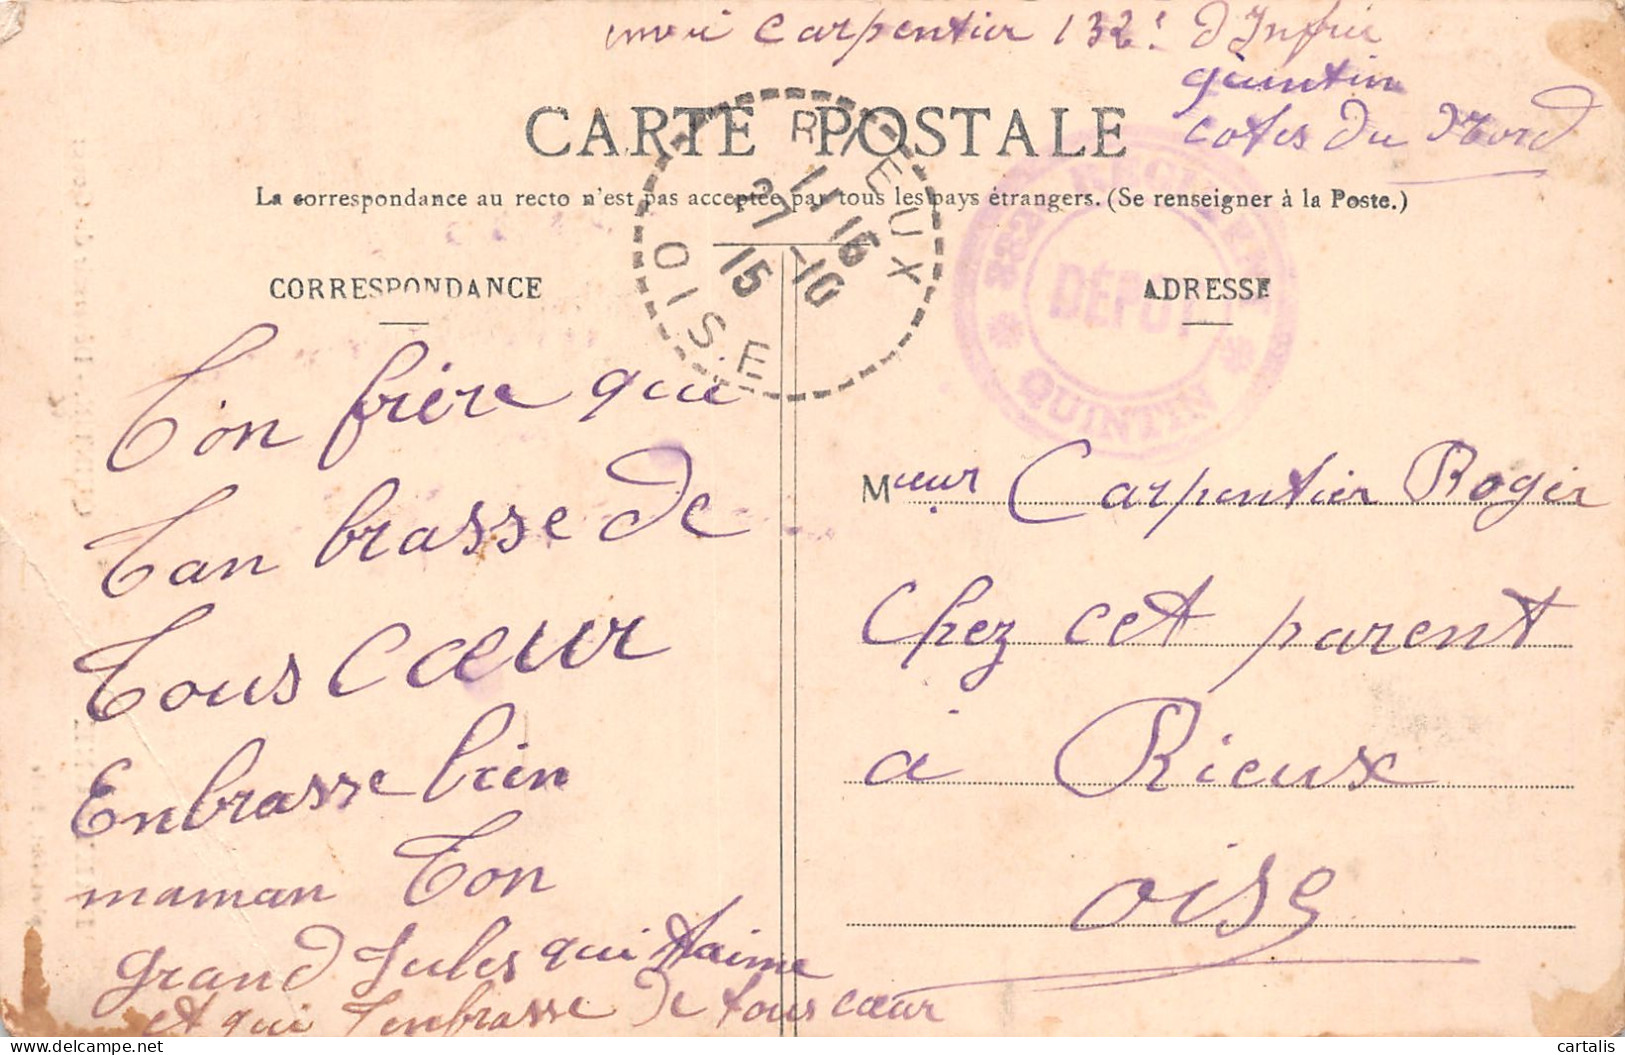 Carpentier 132e d'Infrie
quintin
cotes du Nord
CARTE POSTALE
La correspondance au recto n'est pas acceptée par tous les pays étrangers. (Se renseigner à la Poste.)
RIEUX
11 16
27 -10
15
OISE
RÉGIMENT
DÉPÔT
QUINTIN
CORRESPONDANCE
ADRESSE
Ton frère qui
tan brasse de
tous cœur
Enbrasse bien
maman Ton
grand Jules qui taime
et qui tenbrasse de tous cœur
Mœeur Carpentier Roger
Chez cet parent
à Rieux
oise
cartalis